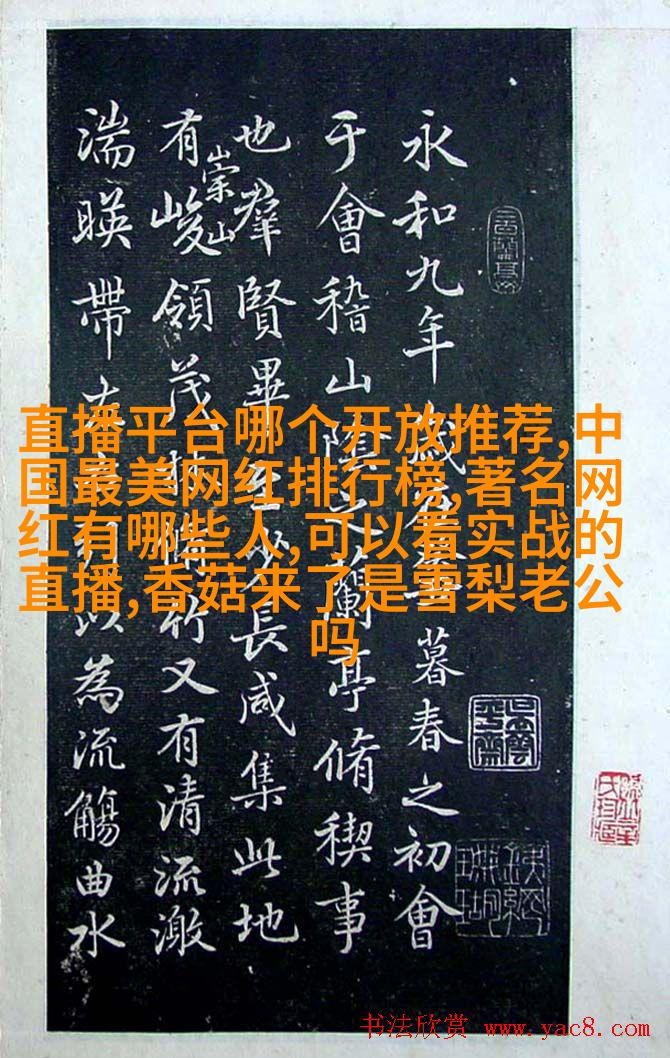 永和九年歲在癸丑暮春之初會
于會稽山陰之蘭亭脩稧事
也羣賢畢至少長咸集此地
有崇山峻領茂林脩竹又有清流激
湍暎帶左右引以為流觴曲水
直播平台哪个开放推荐,中
国最美网红排行榜,著名网
红有哪些人,可以看实战的
直播,香菇来了是雪梨老公
吗
书法欣赏 www.yac8.com